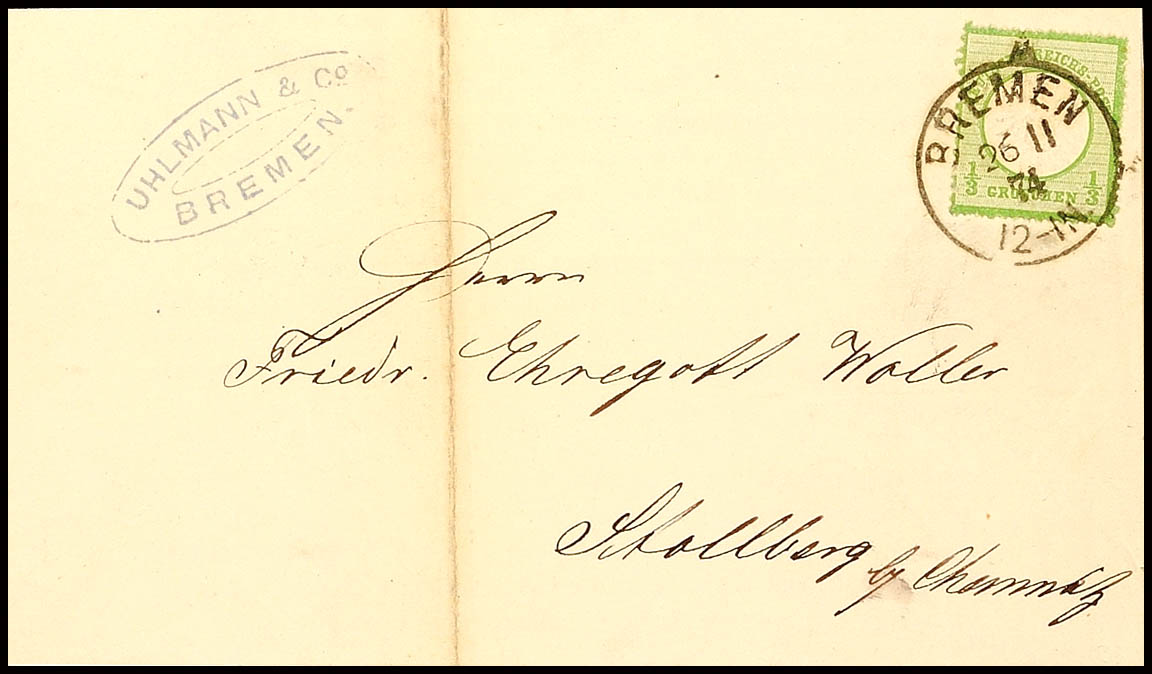 UHLMANN & Co
BREMEN.
REICHS-PO
1/3 GROSCHEN 1/3
BREMEN
26 11
74
12-1N
Herrn
Friedr. Ehregott Woller
Stollberg by Chemnitz